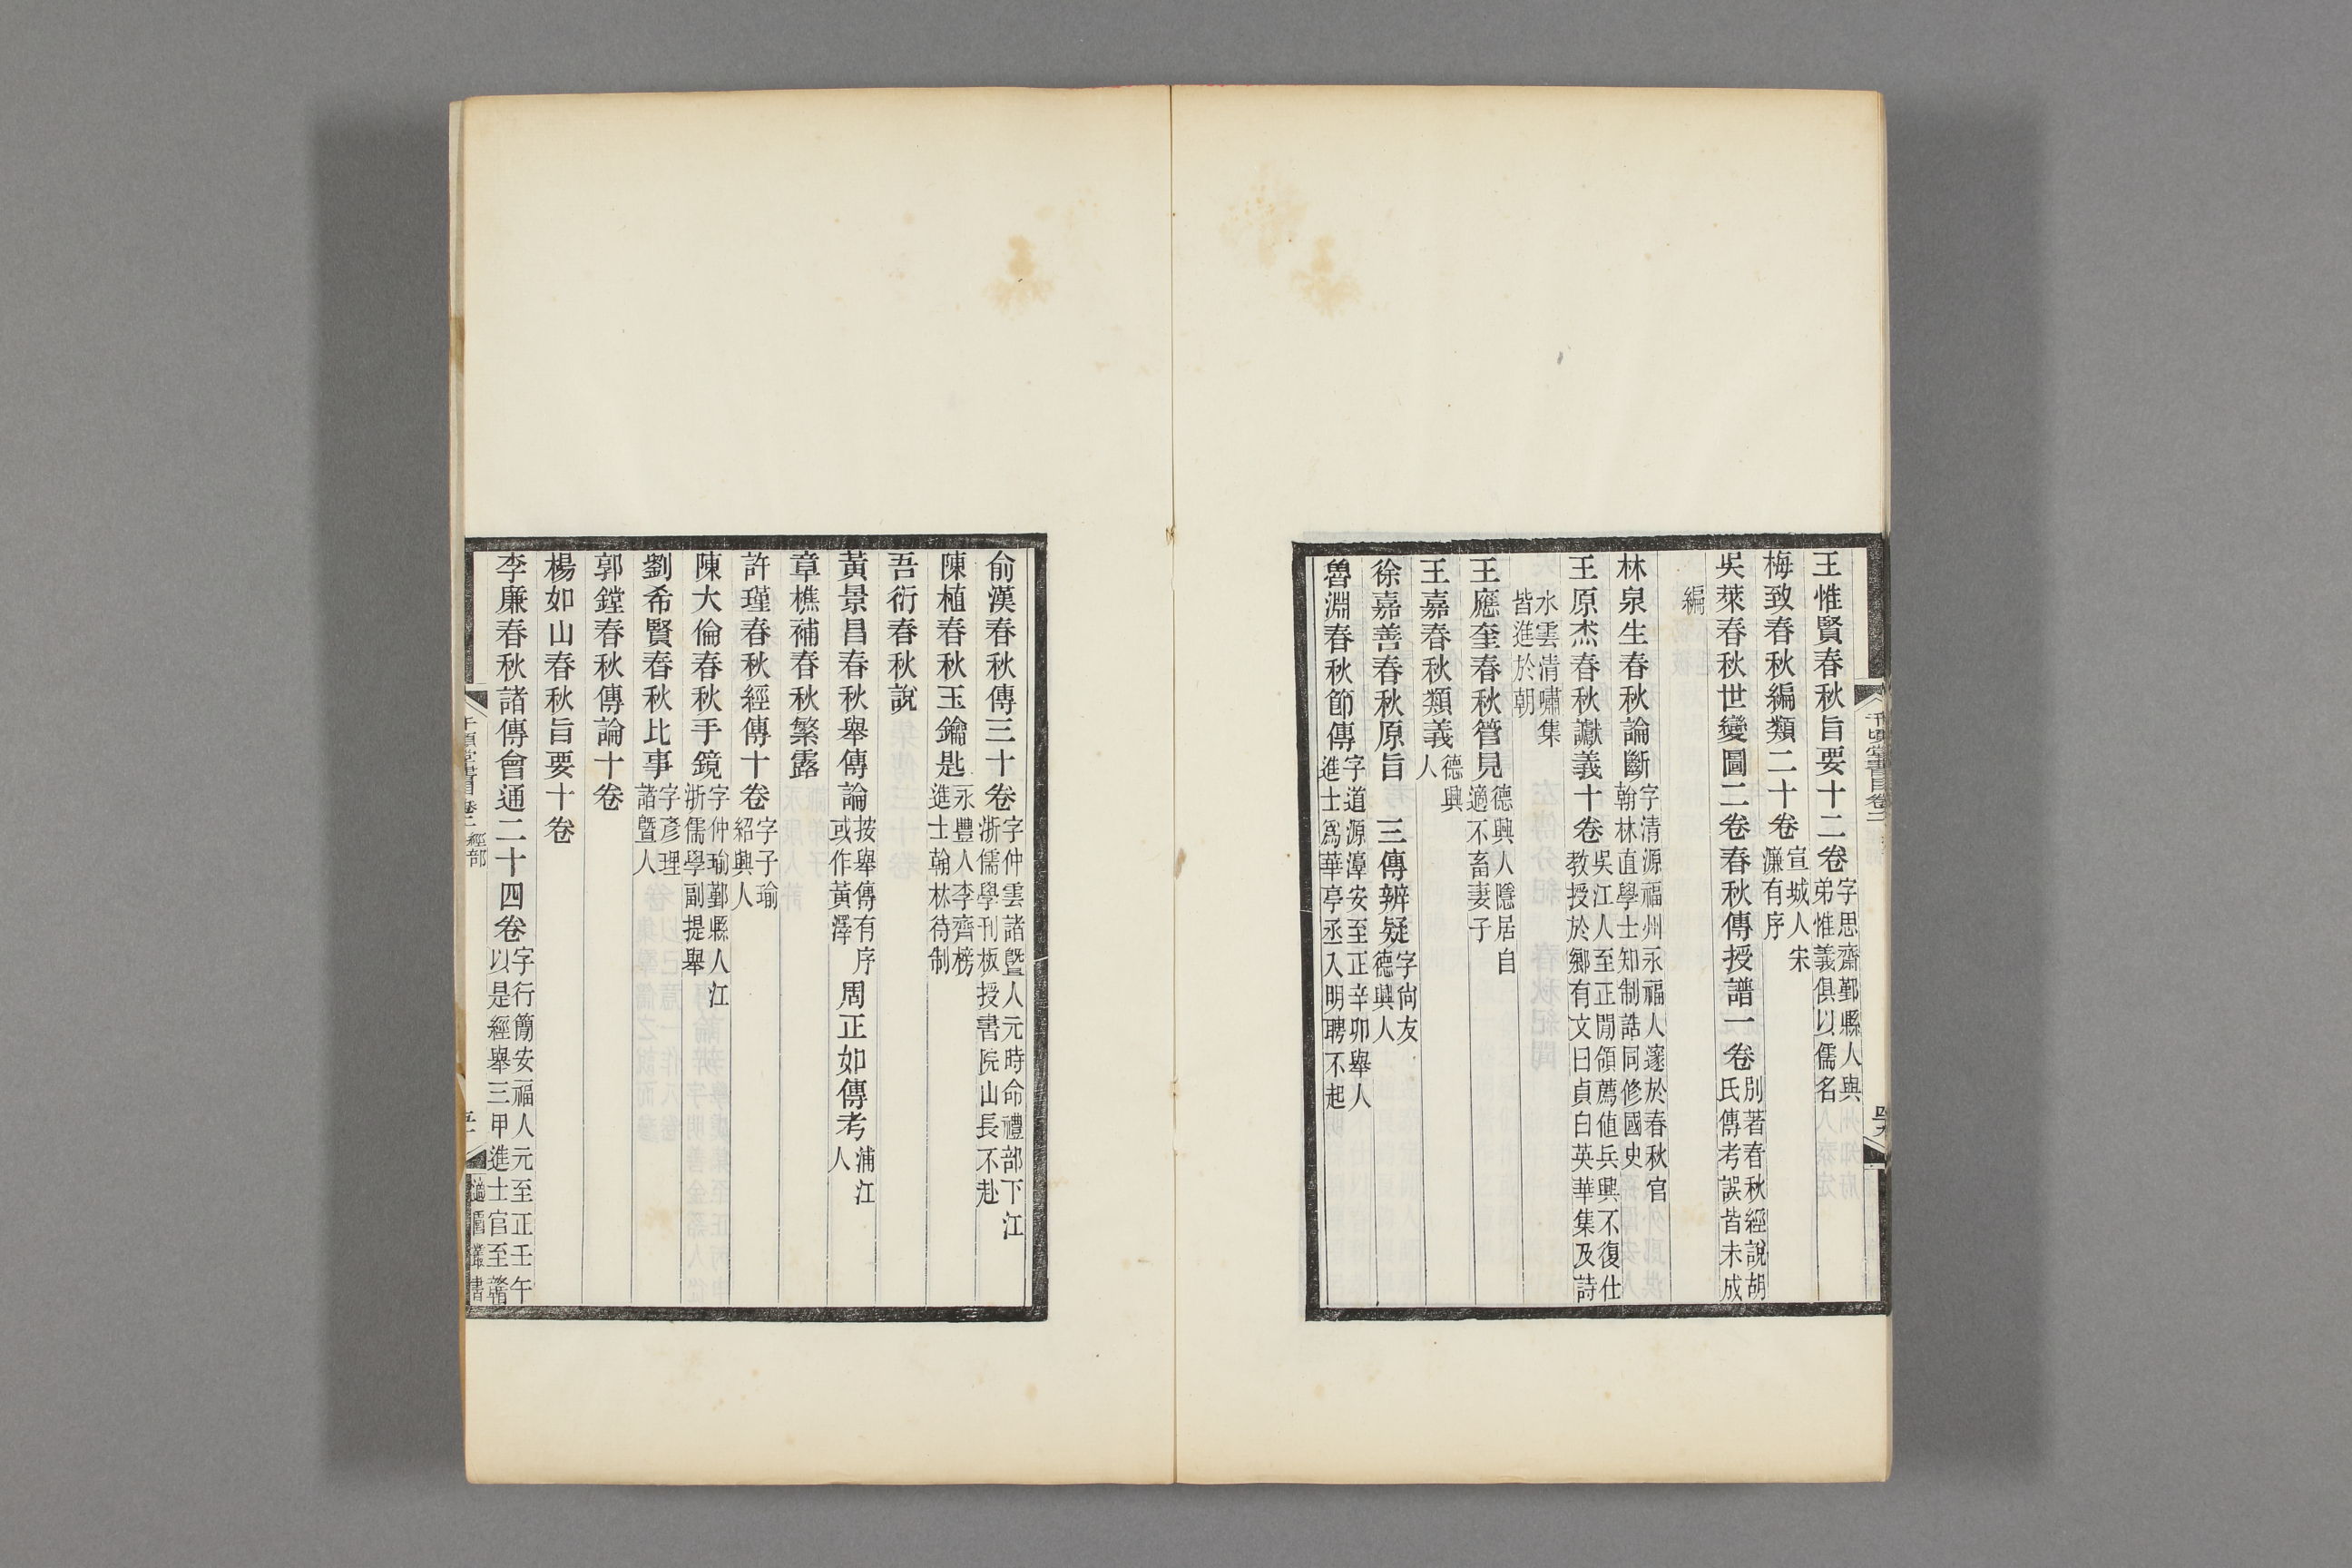 王惟賢春秋旨要十二卷字思齋鄞縣人與弟惟義俱以儒名
梅致春秋編類二十卷宣城人宋濂有序
吳萊春秋世變圖二卷春秋傳授譜一卷別著春秋經說胡氏傳考誤皆未成
編
林泉生春秋論斷字清源福州永福人邃於春秋官翰林直學士知制誥同修國史
王原杰春秋讞義十卷吳江人至正閒領薦値兵興不復仕教授於鄉有文曰貞白英華集及詩
水雲清嘯集皆進於朝
王應奎春秋管見德興人隱居自適不畜妻子
王嘉春秋類義德興人
徐嘉善春秋原旨 三傳辨疑字尙友德興人
魯淵春秋節傳字道源漳安至正辛卯舉人進士爲華亭丞入明聘不起
俞漢春秋傳三十卷字仲雲諸暨人元時命禮部下江浙儒學刊板授書院山長不赴
陳植春秋玉鑰匙永豐人李齊榜進士翰林待制
吾衍春秋說
黃景昌春秋舉傳論按舉傳有序或作黃澤 周正如傳考浦江人
章樵補春秋繁露
許瑾春秋經傳十卷字子瑜紹興人
陳大倫春秋手鏡字仲瑜鄞縣人江浙儒學副提舉
劉希賢春秋比事字彥理諸暨人
郭鏜春秋傳論十卷
楊如山春秋旨要十卷
李廉春秋諸傳會通二十四卷字行簡安福人元至正壬午以是經舉三甲進士官至贛
千頃堂書目卷二 經部
適園叢書